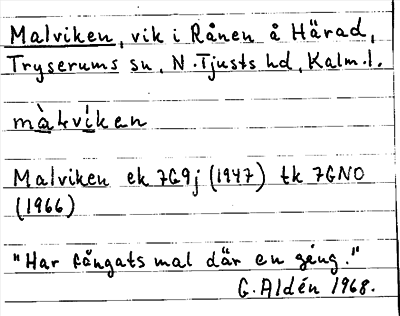 Malviken, vik i Rånen å Härad,
Tryserums sn, N. Tjusts hd, Kalm.l.
màlvíken
Malviken ek 7G9j (1947) tk 7GNO
(1966)
"Har fångats mal där en gång."
G. Aldén 1968.